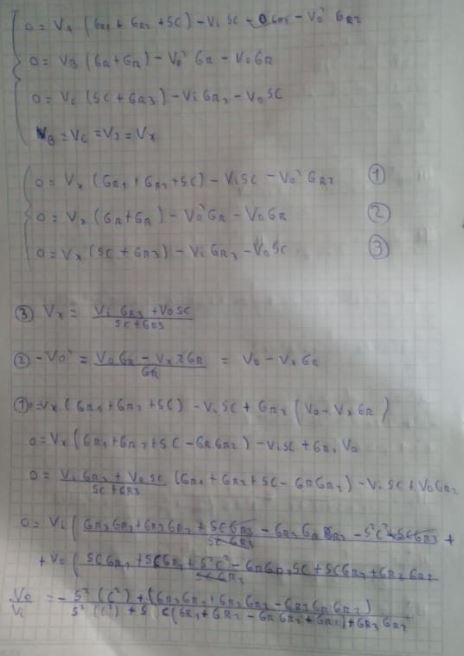 0 = VA (GR1 + GR2 + SC) - Vi SC - 0 GR1 - Vo' GR2
0 = VB (GR + GR) - Vo' GR - Vo GR
0 = VC (SC + GR3) - Vi GR3 - Vo SC
VB = VC = VA = Vx
0 = Vx (GR1 + GR2 + SC) - Vi SC - Vo' GR2 ①
0 = Vx (GR + GR) - Vo' GR - Vo GR ②
0 = Vx (SC + GR3) - Vi GR3 - Vo SC ③
③ Vx = Vi GR3 + Vo SC / SC + GR3
② -Vo' = Vo GR - Vx 2GR / GR = Vo - Vx GR
① 0 = Vx (GR1 + GR2 + SC) - Vi SC + GR2 (Vo - Vx GR)
0 = Vx (GR1 + GR2 + SC - GR GR2) - Vi SC + GR2 Vo
0 = Vi GR3 + Vo SC / SC + GR3 (GR1 + GR2 + SC - GR GR2) - Vi SC + Vo GR2
0 = Vi ( GR3 GR1 + GR3 GR2 + SC GR3 - GR3 GR GR2 - S²C² - SC GR3 / SC GR3 +
+ Vo ( SC GR1 + SC GR2 + S²C² - GR GR2 SC + SC GR2 + GR2 GR3 / SC GR3
Vo / Vi = - S² (C²) + (GR3 GR1 + GR3 GR2 - GR3 GR GR2) / S² (C²) + S C (GR1 + GR2 - GR GR2 + GR2) + GR3 GR2